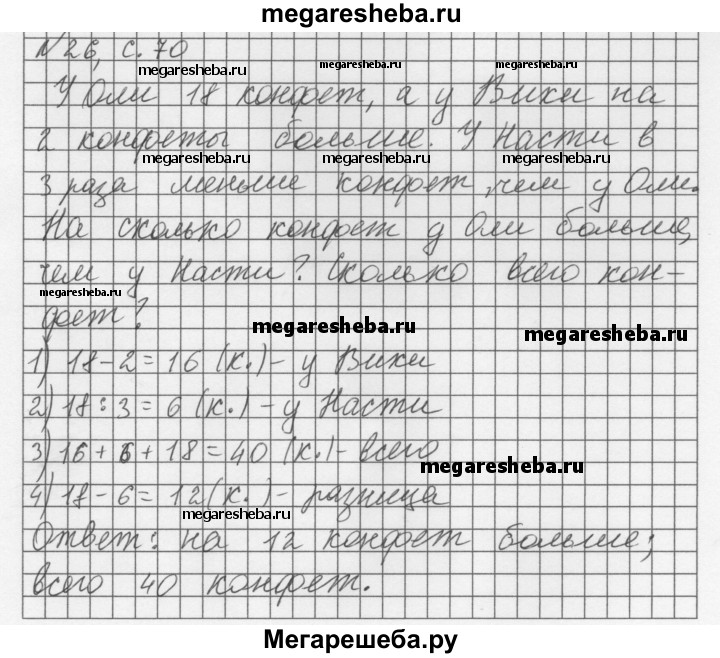 megaresheba.ru
№26, с. 70
megaresheba.ru megaresheba.ru
У Оли 18 конфет, а у Вики на
2 конфеты больше. У Насти в
megaresheba.ru megaresheba.ru megaresheba.ru
3 раза меньше конфет, чем у Оли.
На сколько конфет у Оли больше,
чем у Насти? Сколько всего кон-
megaresheba.ru
фет?
megaresheba.ru
megaresheba.ru
1) 18-2=16 (к.)- у Вики
2) 18:3=6 (к.) - у Насти
3) 16+6+18=40 (к.)- всего
megaresheba.ru
4) 18-6=12(к.)- разница
megaresheba.ru
Ответ: на 12 конфет больше;
всего 40 конфет.
Мегарешеба.ру